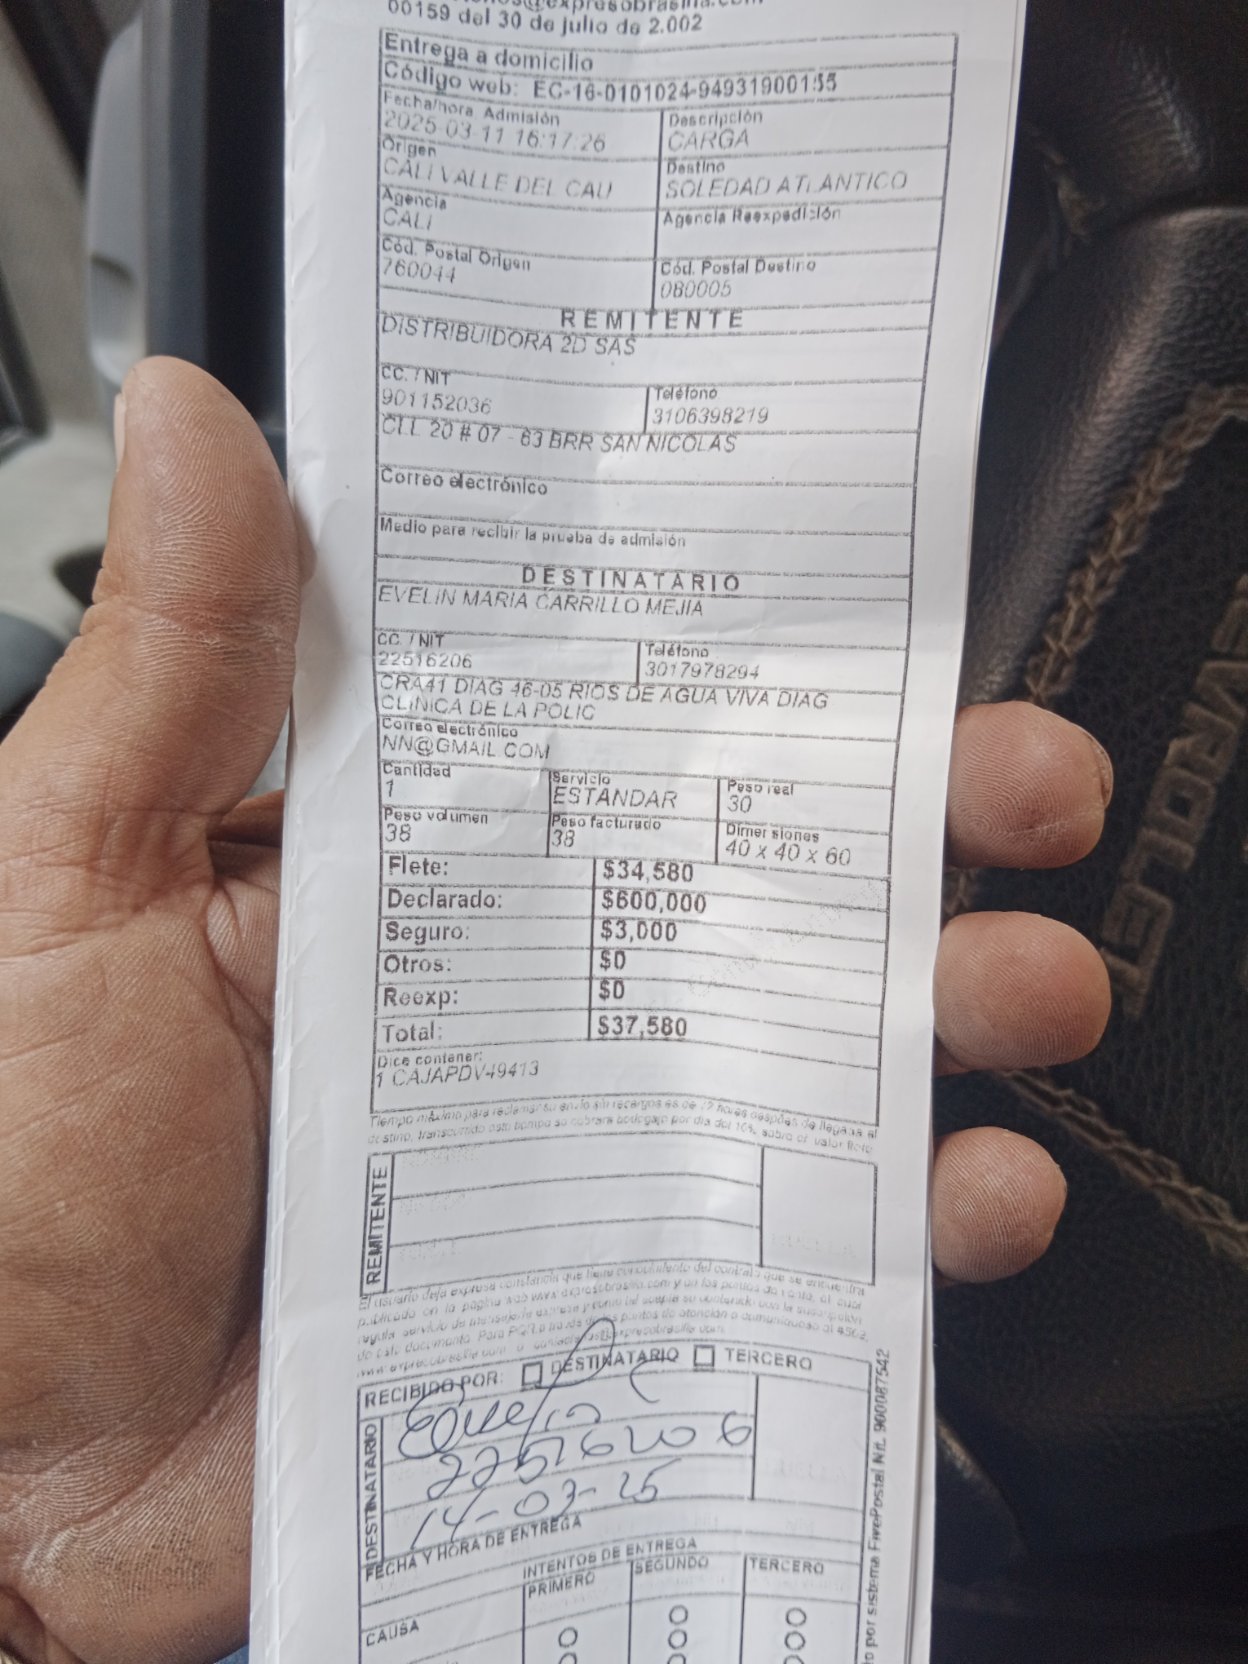 00159 del 30 de julio de 2.002
Entrega a domicilio
Código web: EC-16-0101024-94931900155
Fecha/hora Admisión
2025-03-11 16:17:26
Descripción
CARGA
Origen
CALI VALLE DEL CAU
Destino
SOLEDAD ATLANTICO
Agencia
CALI
Agencia Reexpedición
Cód. Postal Origen
760044
Cód. Postal Destino
080005
REMITENTE
DISTRIBUIDORA 2D SAS
CC. / NIT
901152036
Teléfono
3106398219
CLL 20 # 07 - 63 BRR SAN NICOLAS
Correo electrónico
Medio para recibir la prueba de admisión
DESTINATARIO
EVELIN MARIA CARRILLO MEJIA
CC. / NIT
22516206
Teléfono
3017978294
CRA41 DIAG 46-05 RIOS DE AGUA VIVA DIAG
CLINICA DE LA POLIC
Correo electrónico
NN@GMAIL.COM
Cantidad
1
Servicio
ESTANDAR
Peso real
30
Peso volumen
38
Peso facturado
38
Dimensiones
40 x 40 x 60
Flete: $34,580
Declarado: $600,000
Seguro: $3,000
Otros: $0
Reexp: $0
Total: $37,580
Dice contener:
1 CAJAPDV49413
Tiempo máximo para reclamar su envío sin recargos es de 72 horas después de llegada al
destino, transcurrido este tiempo se cobrara bodegaje por día del 10% sobre el valor flete
REMITENTE
El usuario deja expresa constancia que tiene conocimiento del contrato que se encuentra
publicado en la página web www.expresobrasilia.com y en los puntos de venta, el cual
regula servicio de mensajería expresa y como tal acepta su contenido con la suscripción
de este documento. Para PQR a través de los puntos de atención o comunicarse al
www.expresobrasilia.com
RECIBIDO POR: DESTINATARIO TERCERO
DESTINATARIO
Evelin
22516206
14-03-25
FECHA Y HORA DE ENTREGA
INTENTOS DE ENTREGA
CAUSA
PRIMERO
SEGUNDO
TERCERO
por sistema FivePostal Nit. 900087542